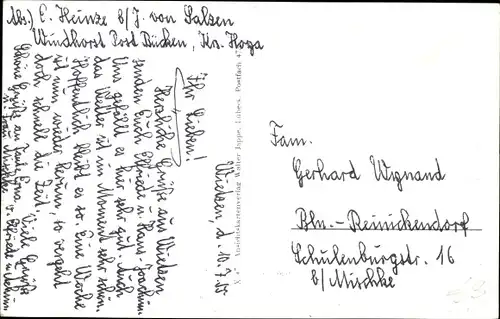 Abs.) E. Heinze b/J. von Salzen
Windhorst Post Bücken, Kr. Hoya
Wietzen, d. 10.7.
Ihr Lieben!
Herzliche Grüße aus Wietzen
senden Euch Elfriede u. Hans-Joachim.
Uns gefällt es hier sehr gut. Auch
das Wetter ist im Moment sehr schön.
Hoffentlich bleibt es so. Eine Woche
ist nun wieder herum, so vergeht
doch schnell die Zeit. Viele Grüße
u. Frau Mischke v. Elfriede u. Achim
Schöne Grüße an Tante Erna.
Ansichtskartenverlag Walter Joppe, Lübeck, Postfach
Fam.
Gerhard Wignand
Bln.-Reinickendorf
Schulenburgstr. 16
b/Mischke